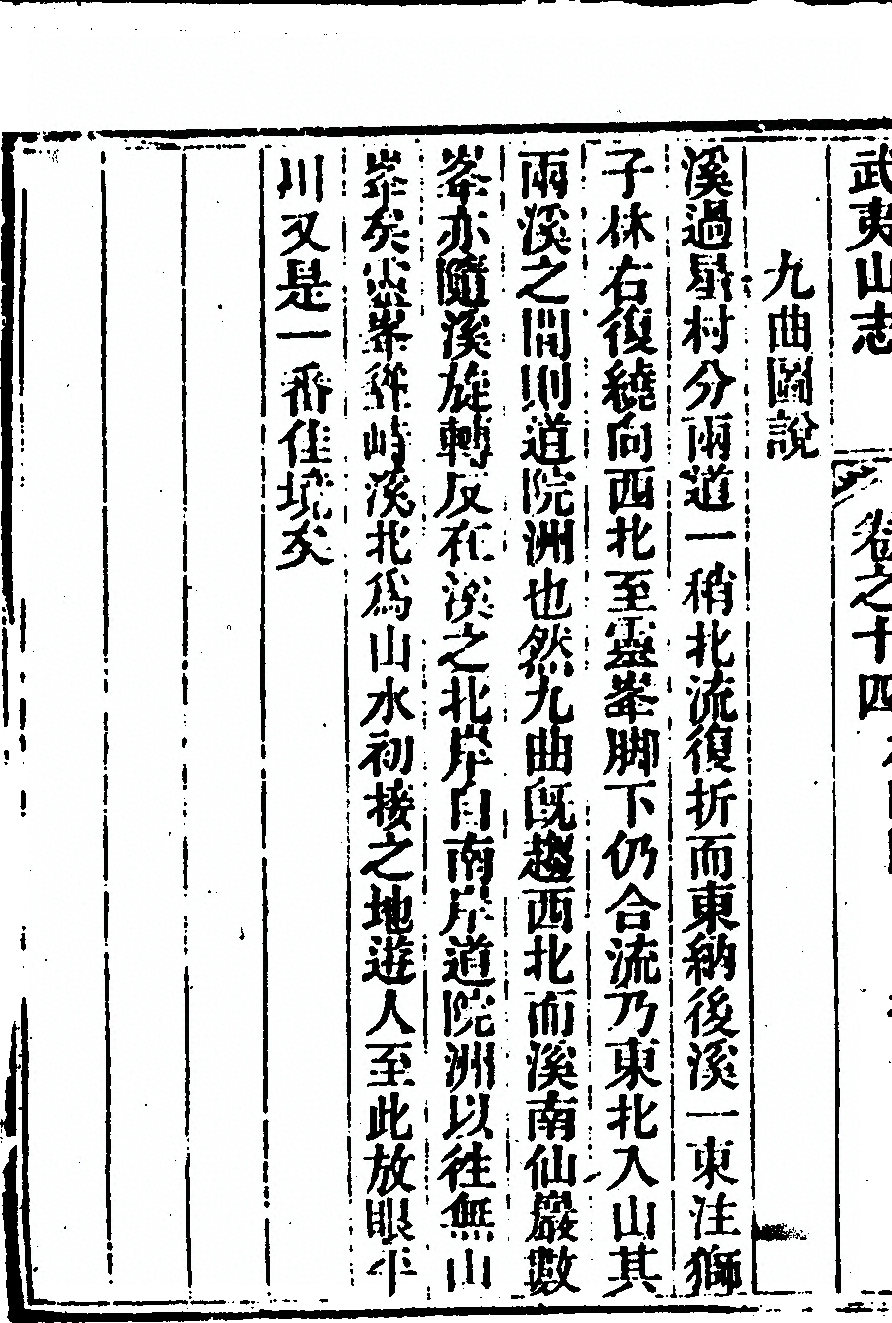 武夷山志 卷之十四
九曲圖說
溪過星村分兩道一稍北流復折而東納後溪一東注獅
子林右復繞向西北至靈峯脚下仍合流乃東北入山其
兩溪之間則道院洲也然九曲既趨西北而溪南仙巖數
峯亦隨溪旋轉反在溪之北岸自南岸道院洲以往無山
峯矣靈峯鋅峙溪北爲山水初接之地遊人至此放眼平
川又是一番佳境矣